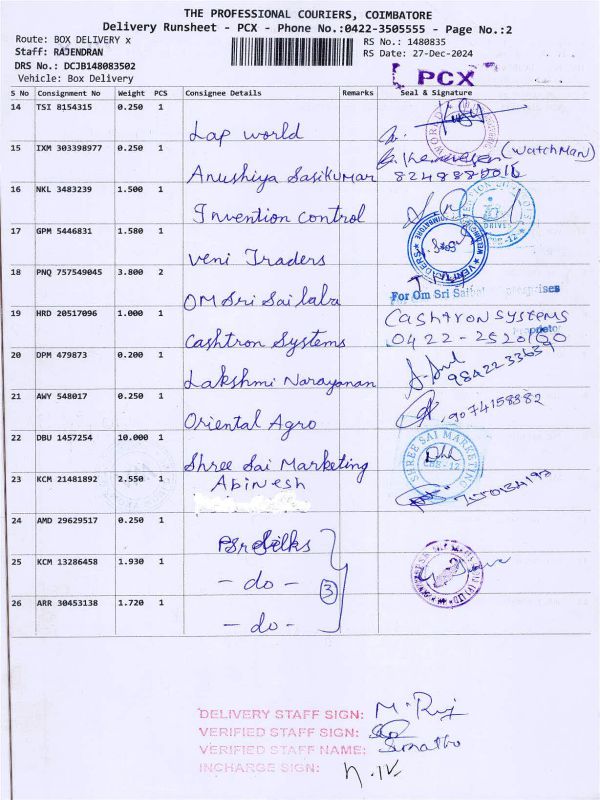 THE PROFESSIONAL COURIERS, COIMBATORE
Delivery Runsheet - PCX - Phone No.:0422-3505555 - Page No.:2
Route: BOX DELIVERY x
RS No.: 1480835
Staff: RAJENDRAN
RS Date: 27-Dec-2024
DRS No.: DCJB148083502
Vehicle: Box Delivery
PCX
S No Consignment No Weight PCS Consignee Details Remarks Seal & Signature
14 TSI 8154315 0.250 1
Lap world
15 IXM 303398977 0.250 1
(WatchMan)
Anushiya Sasikumar
16 NKL 3483239 1.500 1
Invention control
17 GPM 5446831 1.580 1
Veni Traders
18 PNQ 757549045 3.800 2
For Om Sri
OM Sri Sai laba
19 HRD 20517096 1.000 1
Cashtron Systems
Cashtron Systems
0422-2520100
20 DPM 479873 0.200 1
Lakshmi Narayanan
98422 33639
21 AWY 548017 0.250 1
9074158882
Oriental Agro
22 DBU 1457254 10.000 1
SHREE SAI MARKETING
CBE-12
Shree Sai Marketing
23 KCM 21481892 2.550 1
Abinesh
24 AMD 29629517 0.250 1
PSr Silks
25 KCM 13286458 1.930 1
- do -
3
26 ARR 30453138 1.720 1
- do -
DELIVERY STAFF SIGN:
VERIFIED STAFF SIGN:
VERIFIED STAFF NAME:
INCHARGE SIGN: